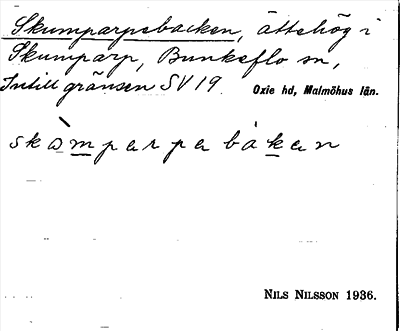 Skumparpsbacken, ättehög i
Skumparp, Bunkeflo sn,
Intill gränsen SV 19. Oxie hd, Malmöhus lån.
skòmparpabakan
NILS NILSSON 1936.